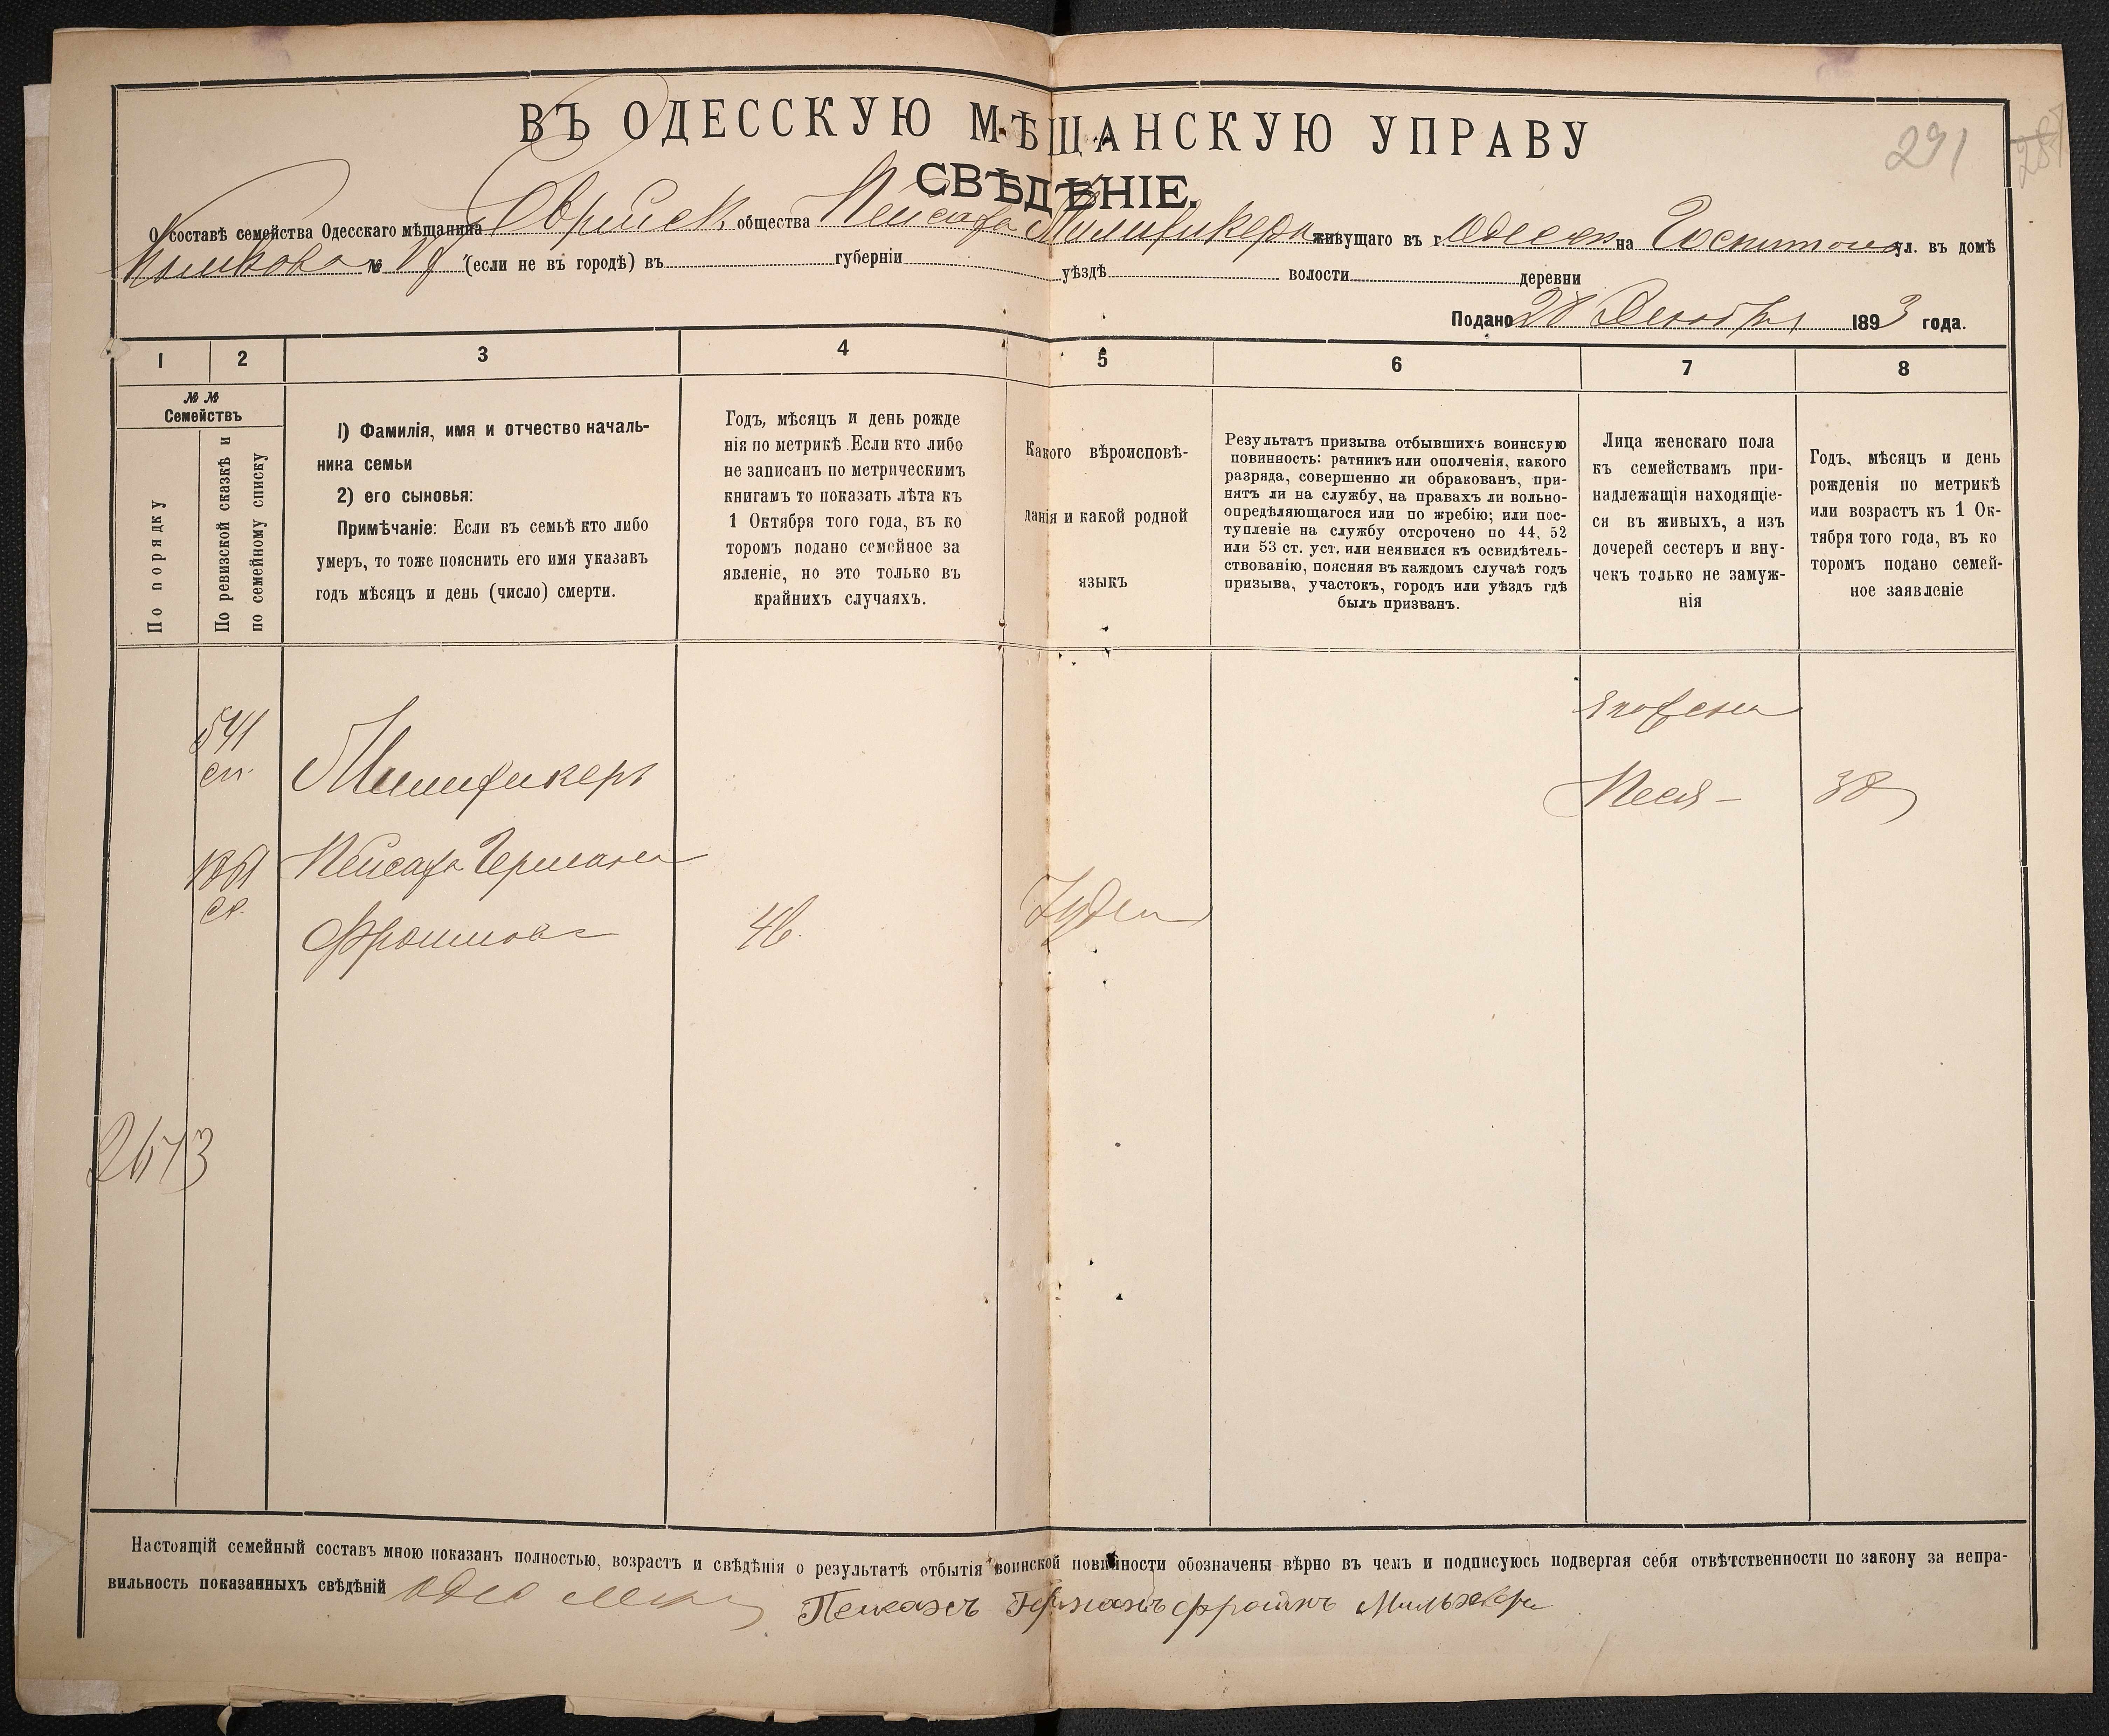 291
ВЪ ОДЕССКУЮ МѢЩАНСКУЮ УПРАВУ
СВѢДѢНІЕ.
О составѣ семейства Одесскаго мѣщанина Еврейск. общества Пейсаха живущаго въ г. Одессѣ на ул. въ домѣ
№ (если не въ городѣ) въ губерніи уѣздѣ волости деревни
Подано 28 Декабря 1893 года.
1 2 3 4 5 6 7 8
№ №
Семействъ
По порядку
По ревизской сказкѣ и
по семейному списку
1) Фамилія, имя и отчество началь-
ника семьи
2) его сыновья:
Примѣчаніе: Если въ семьѣ кто либо
умеръ, то тоже пояснить его имя указавъ
годъ мѣсяцъ и день (число) смерти.
Годъ, мѣсяцъ и день рожде
нія по метрикѣ. Если кто либо
не записанъ по метрическимъ
книгамъ то показать лѣта къ
1 Октября того года, въ ко
торомъ подано семейное за
явленіе, но это только въ
крайнихъ случаяхъ.
Какого вѣроисповѣ-
данія и какой родной
языкъ
Результатъ призыва отбывшихъ воинскую
повинность: ратникъ или ополченія, какого
разряда, совершенно ли обракованъ, при-
нятъ ли на службу, на правахъ ли вольно-
опредѣляющагося или по жребію; или пос-
тупленіе на службу отсрочено по 44, 52
или 53 ст. уст. или неявился къ освидѣтель-
ствованію, поясняя въ каждомъ случаѣ годъ
призыва, участокъ, городъ или уѣздъ гдѣ
былъ призванъ.
Лица женскаго пола
къ семействамъ при-
надлежащія находящіе-
ся въ живыхъ, а изъ
дочерей сестеръ и вну-
чекъ только не замуж-
нія
Годъ, мѣсяцъ и день
рожденія по метрикѣ
или возрастъ къ 1 Ок-
тября того года, въ ко
торомъ подано семей-
ное заявленіе
541
сп.
его жена
Песя — 38
Пейсахъ Германъ
46.
Іудей
2673
Настоящій семейный составъ мною показанъ полностью, возрастъ и свѣдѣнія о результатѣ отбытія воинской повинности обозначены вѣрно въ чемъ и подписуюсь подвергая себя отвѣтственности по закону за непра-
вильность показанныхъ свѣдѣній